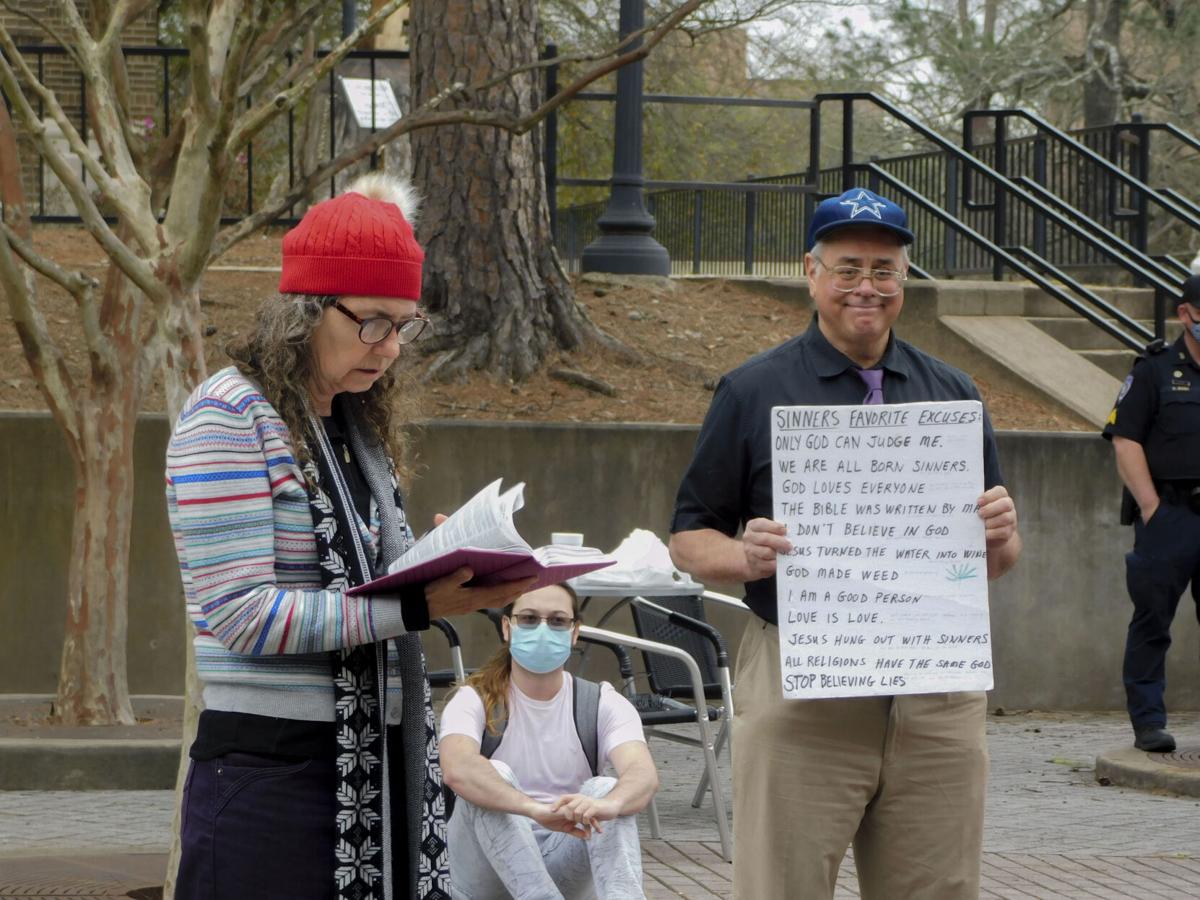 SINNERS FAVORITE EXCUSES:
ONLY GOD CAN JUDGE ME.
WE ARE ALL BORN SINNERS.
GOD LOVES EVERYONE
THE BIBLE WAS WRITTEN BY
I DON'T BELIEVE IN GOD
JESUS TURNED THE WATER INTO WINE
GOD MADE WEED
I AM A GOOD PERSON
LOVE IS LOVE.
JESUS HUNG OUT WITH SINNERS
ALL RELIGIONS HAVE THE SAME GOD
STOP BELIEVING LIES